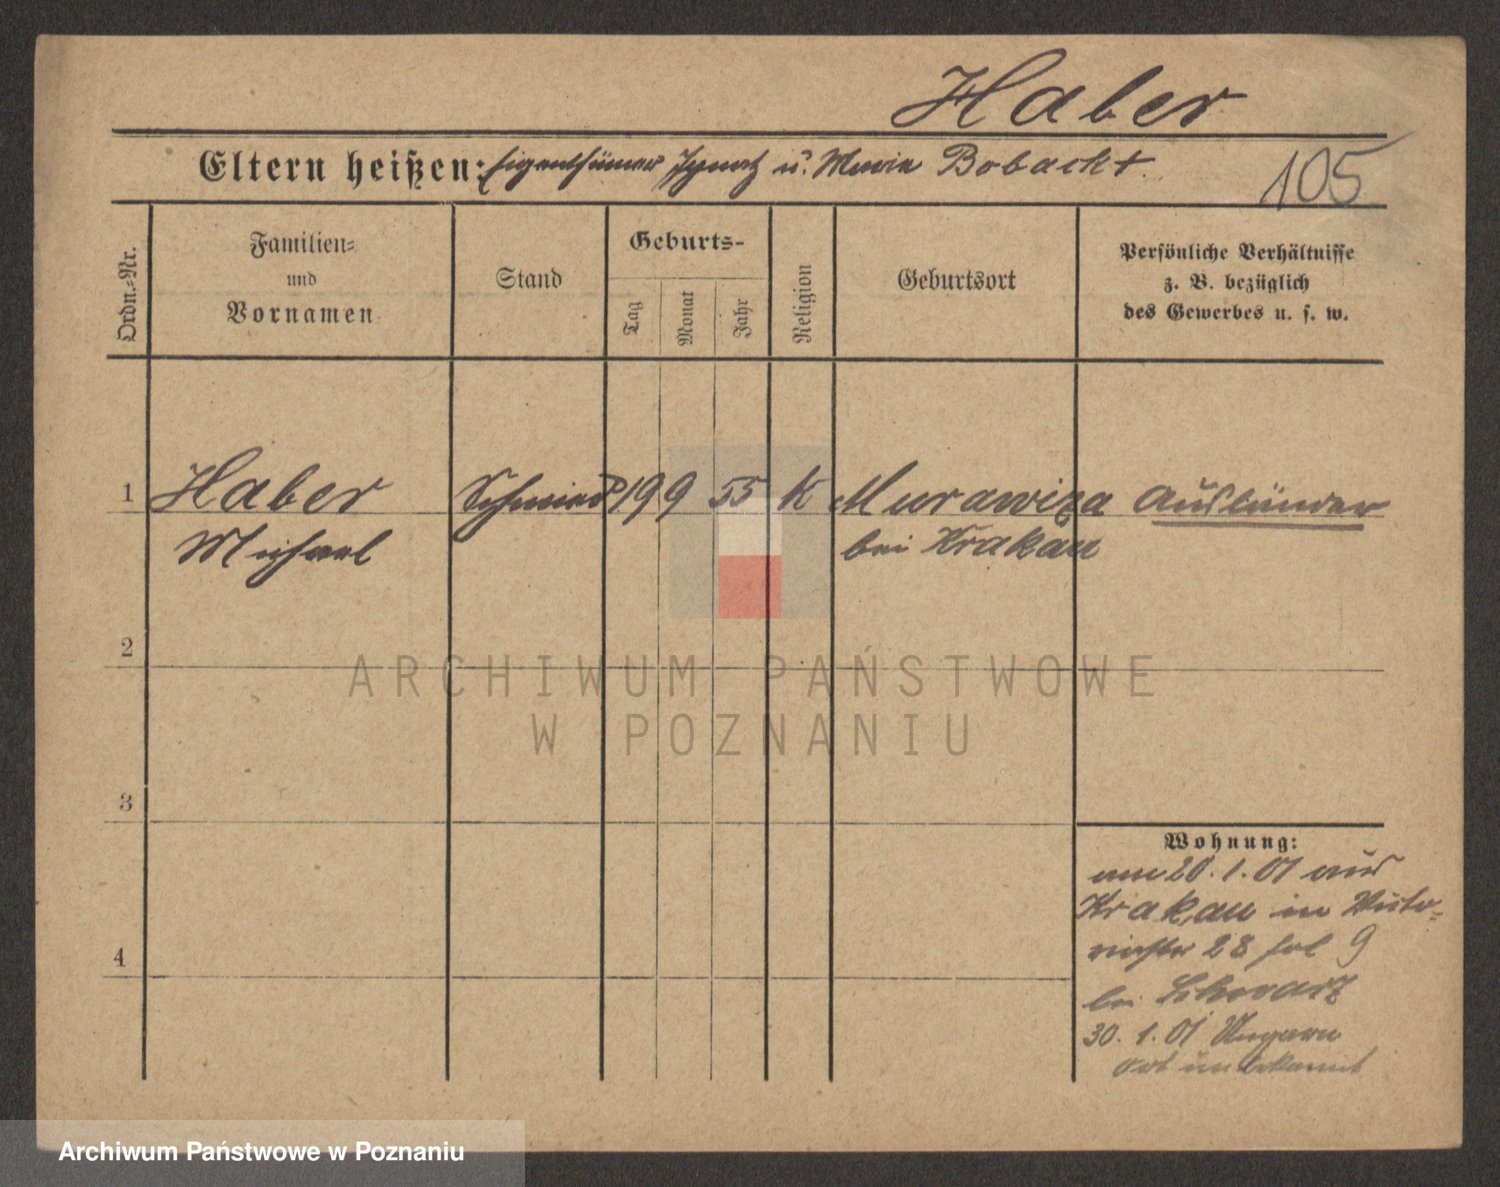 Haber
Eltern heißen: Eigenthümer Ignatz u. Marie Bobackt.
105
Ordn.-Nr.
Familien-
und
Vornamen
Stand
Geburts-
Tag
Monat
Jahr
Religion
Geburtsort
Persönliche Verhältnisse
z. B. bezüglich
des Gewerbes u. s. w.
1 Haber Schmied 19 9 55 K Murawiza Ausländer
Michael bei Krakau
2
3
4
Wohnung:
am 20. 1. 01 aus
Krakau in
28 9
bei Schwarz
30. 1. 01 Ungarn
Ort unbekannt
ARCHIWUM PAŃSTWOWE
W POZNANIU
Archiwum Państwowe w Poznaniu